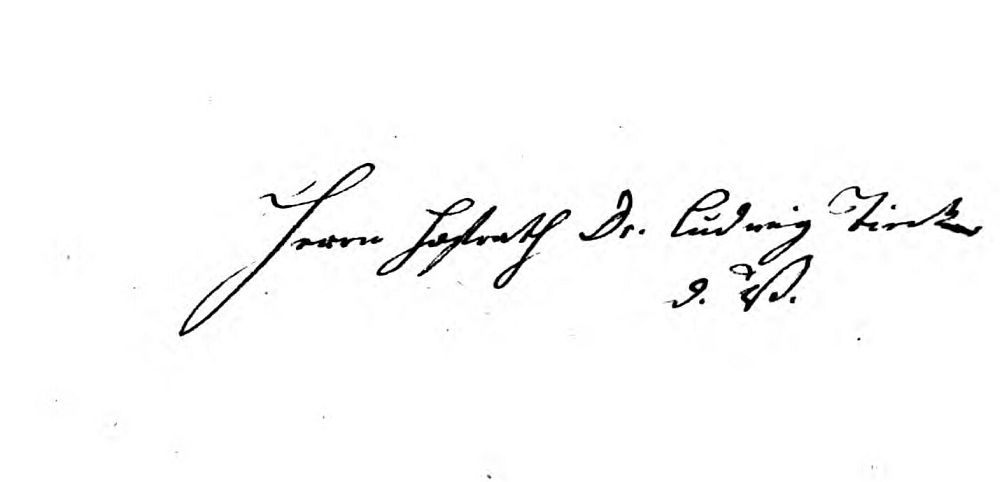 Herrn Hofrath Dr. Ludwig Tieck
d. V.